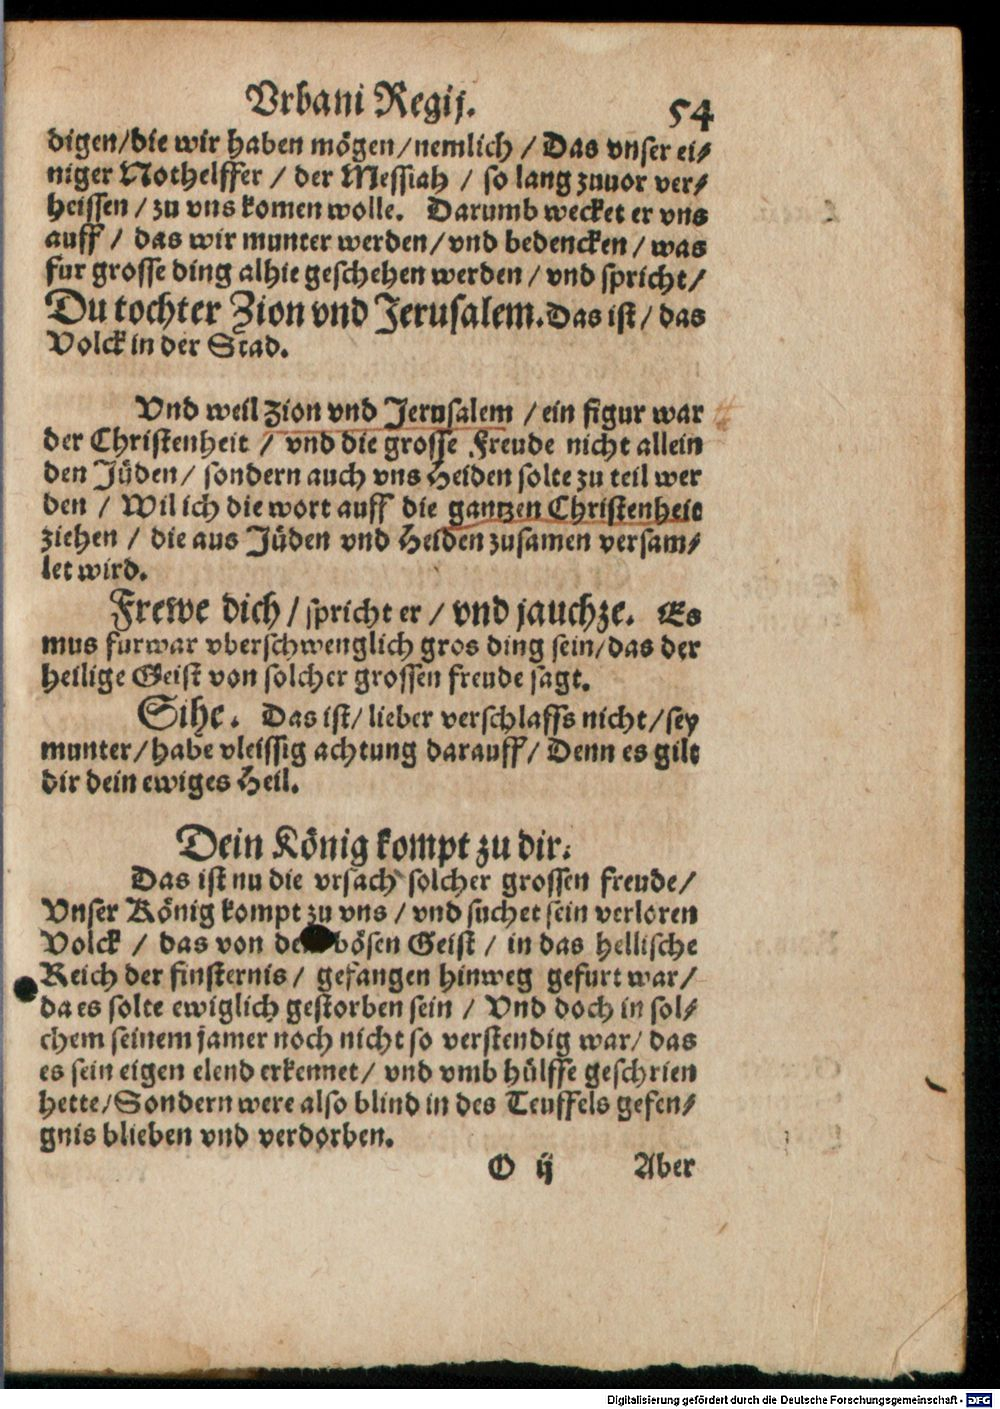 Vrbani Regij.
54
digen/die wir haben mögen/nemlich / Das vnser ei/
niger Nothelffer / der Messiah / so lang zuuor ver/
heissen / zu vns komen wolle. Darumb wecket er vns
auff / das wir munter werden/vnd bedencken / was
fur grosse ding alhie geschehen werden / vnd spricht/
Du tochter Zion vnd Jerusalem. Das ist / das
Volck in der Stad.
Vnd weil Zion vnd Jerusalem / ein figur war
der Christenheit / vnd die grosse Freude nicht allein
den Jüden / sondern auch vns Heiden solte zu teil wer
den / Wil ich die wort auff die gantzen Christenheit
ziehen / die aus Jüden vnd Heiden zusamen versam/
let wird.
Frewe dich / spricht er / vnd jauchze. Es
mus furwar vberschwenglich gros ding sein/das der
heilige Geist von solcher grossen freude sagt.
Sihe. Das ist/ lieber verschlaffs nicht/sey
munter/habe vleissig achtung darauff/ Denn es gilt
dir dein ewiges Heil.
Dein König kompt zu dir.
Das ist nu die vrsach solcher grossen freude/
Vnser König kompt zu vns / vnd suchet sein verloren
Volck / das von de bösen Geist / in das hellische
Reich der finsternis / gefangen hinweg gefurt war/
da es solte ewiglich gestorben sein / Vnd doch in sol/
chem seinem jamer noch nicht so verstendig war/ das
es sein eigen elend erkennet/ vnd vmb hülffe geschrien
hette/Sondern were also blind in des Teuffels gefen/
gnis blieben vnd verdorben.
O ij
Aber
Digitalisierung gefördert durch die Deutsche Forschungsgemeinschaft - DFG